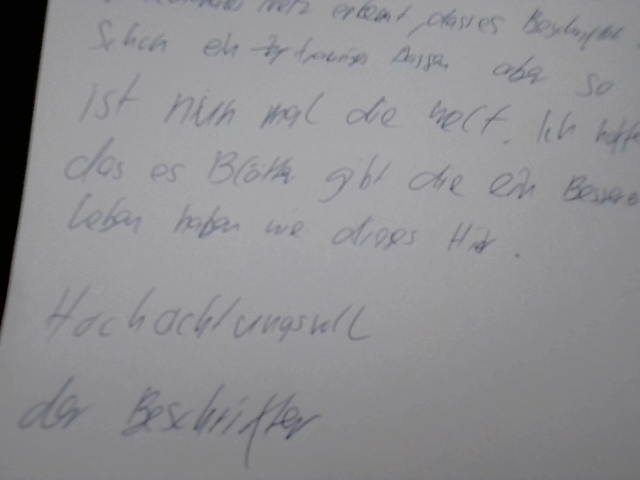 Netz erkennt, dass es Beschrift
Schon ein trauriges Dasein aber so
ist nun mal die welt. Ich hoffe
das es Blätter gibt die ein Besseres
Leben haben wie dieses Hier.
Hochachtungsvoll
der Beschrifter